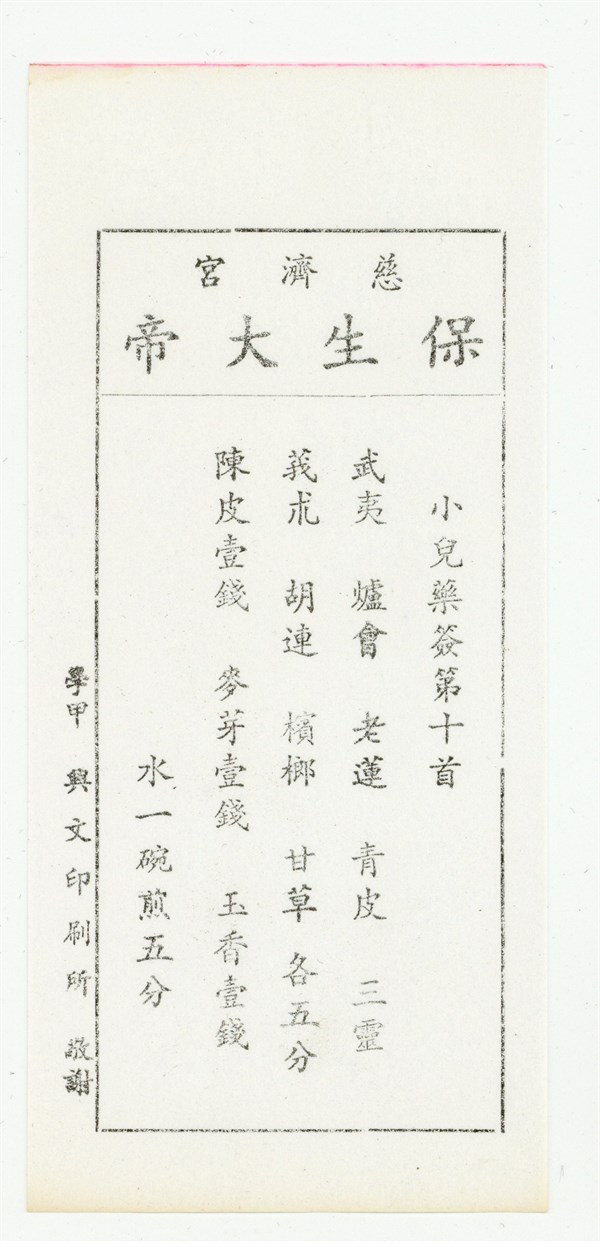 慈濟宮
保生大帝
小兒藥簽第十首
武夷 爐會 老蓮 青皮 三靈
莪朮 胡連 檳榔 甘草 各五分
陳皮壹錢 麥芽壹錢 玉香壹錢
水一碗煎五分
學甲 興文印刷所 敬謝